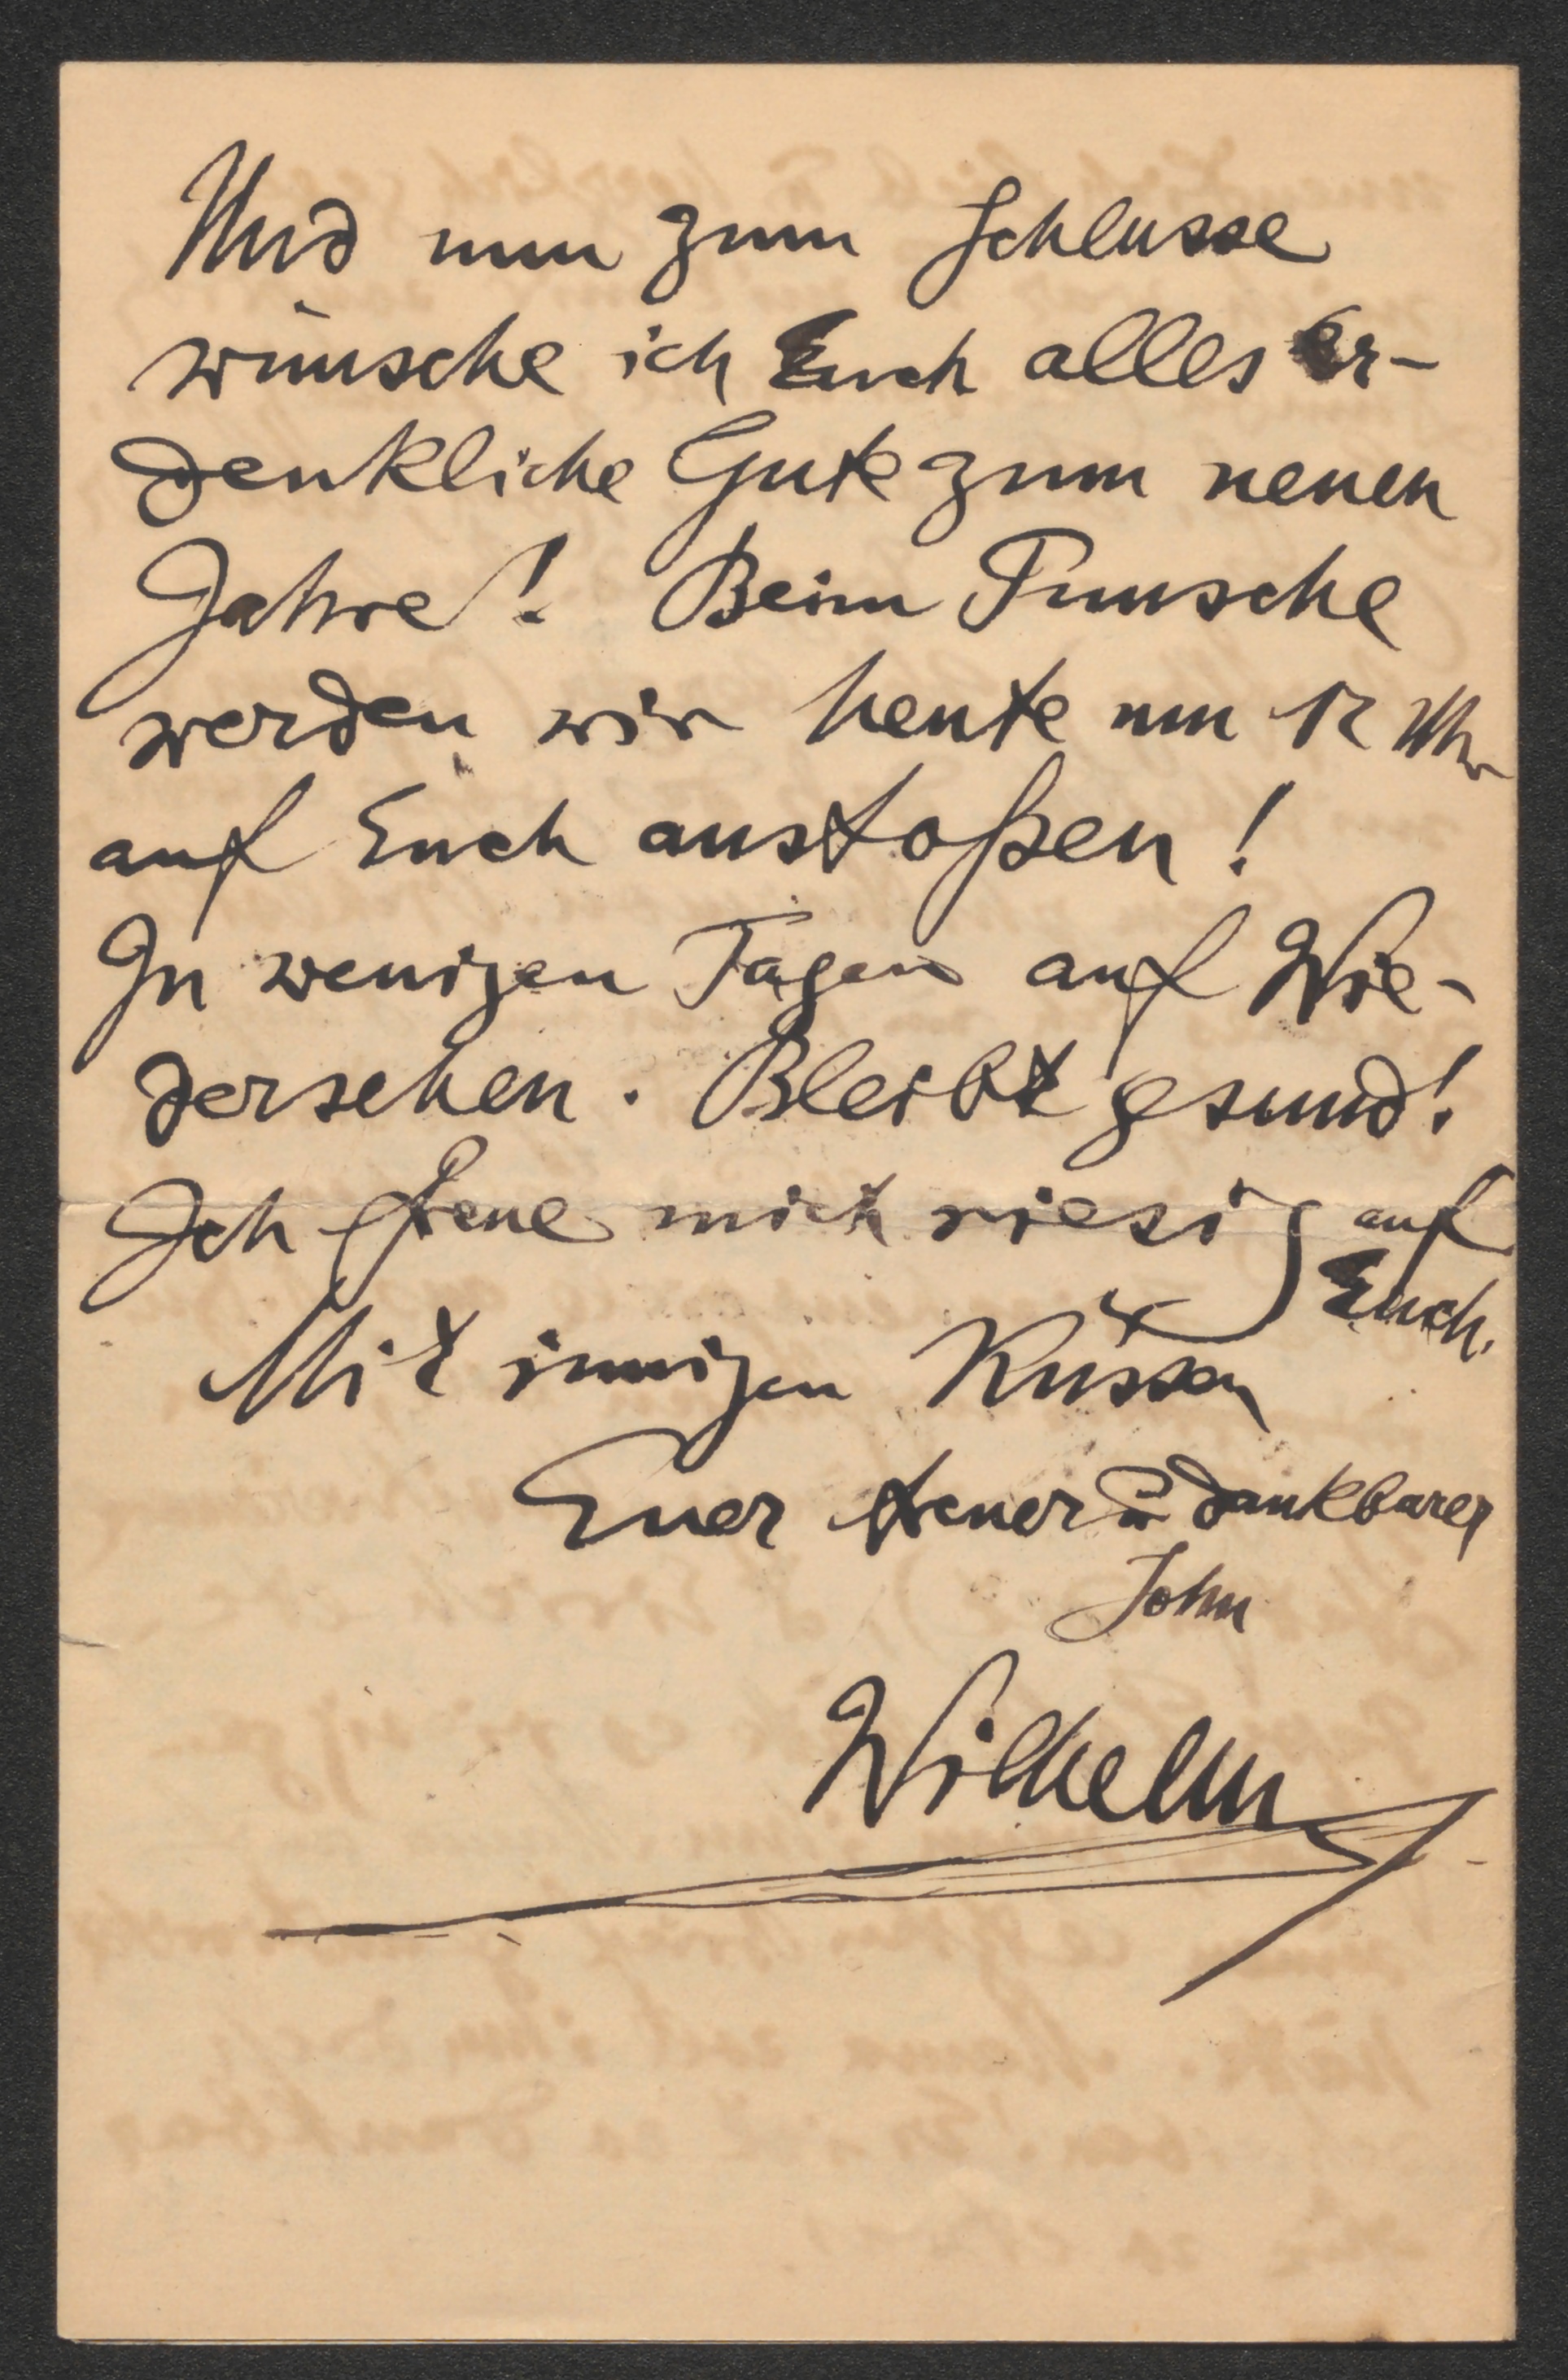 Und nun zum Schlusse
wünsche ich Euch alles Er-
denkliche Gute zum neuen
Jahre! Beim Punsche
werden wir heute um 12 Uhr
auf Euch anstoßen!
In wenigen Tagen auf Wie-
dersehen. Bleibt gesund!
Ich freue mich riesig auf
Euch.
Mit innigen Küssen
Euer treuer u dankbarer
Sohn
Wilhelm